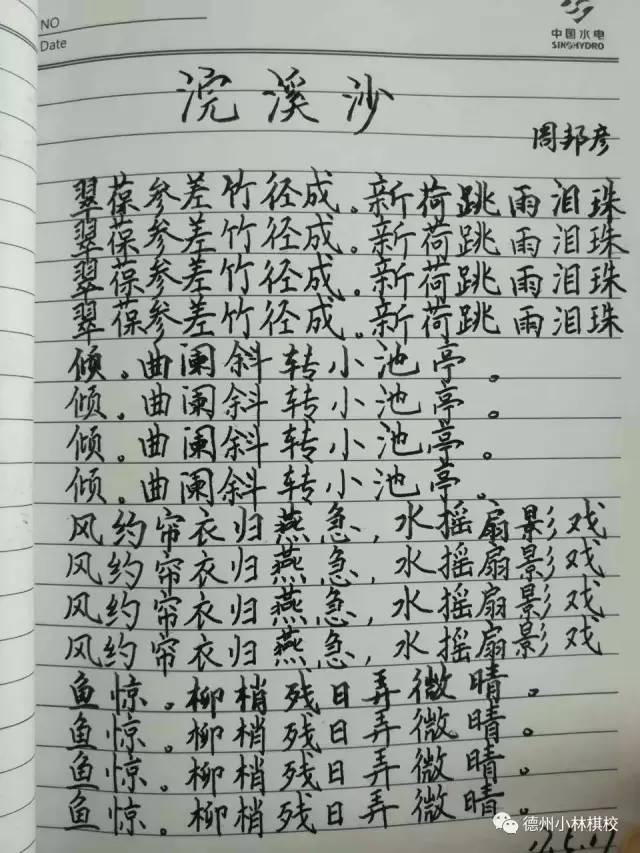 NO
Date
中国水电
SINOHYDRO
浣溪沙
周邦彦
翠葆参差竹径成。新荷跳雨泪珠
翠葆参差竹径成。新荷跳雨泪珠
翠葆参差竹径成。新荷跳雨泪珠
翠葆参差竹径成。新荷跳雨泪珠
倾。曲阑斜转小池亭。
倾。曲阑斜转小池亭。
倾。曲阑斜转小池亭。
倾。曲阑斜转小池亭。
风约帘衣归燕急,水摇扇影戏
风约帘衣归燕急,水摇扇影戏
风约帘衣归燕急,水摇扇影戏
风约帘衣归燕急,水摇扇影戏
鱼惊。柳梢残日弄微晴。
鱼惊。柳梢残日弄微晴。
鱼惊。柳梢残日弄微晴。
鱼惊。柳梢残日弄微晴。
德州小林棋校